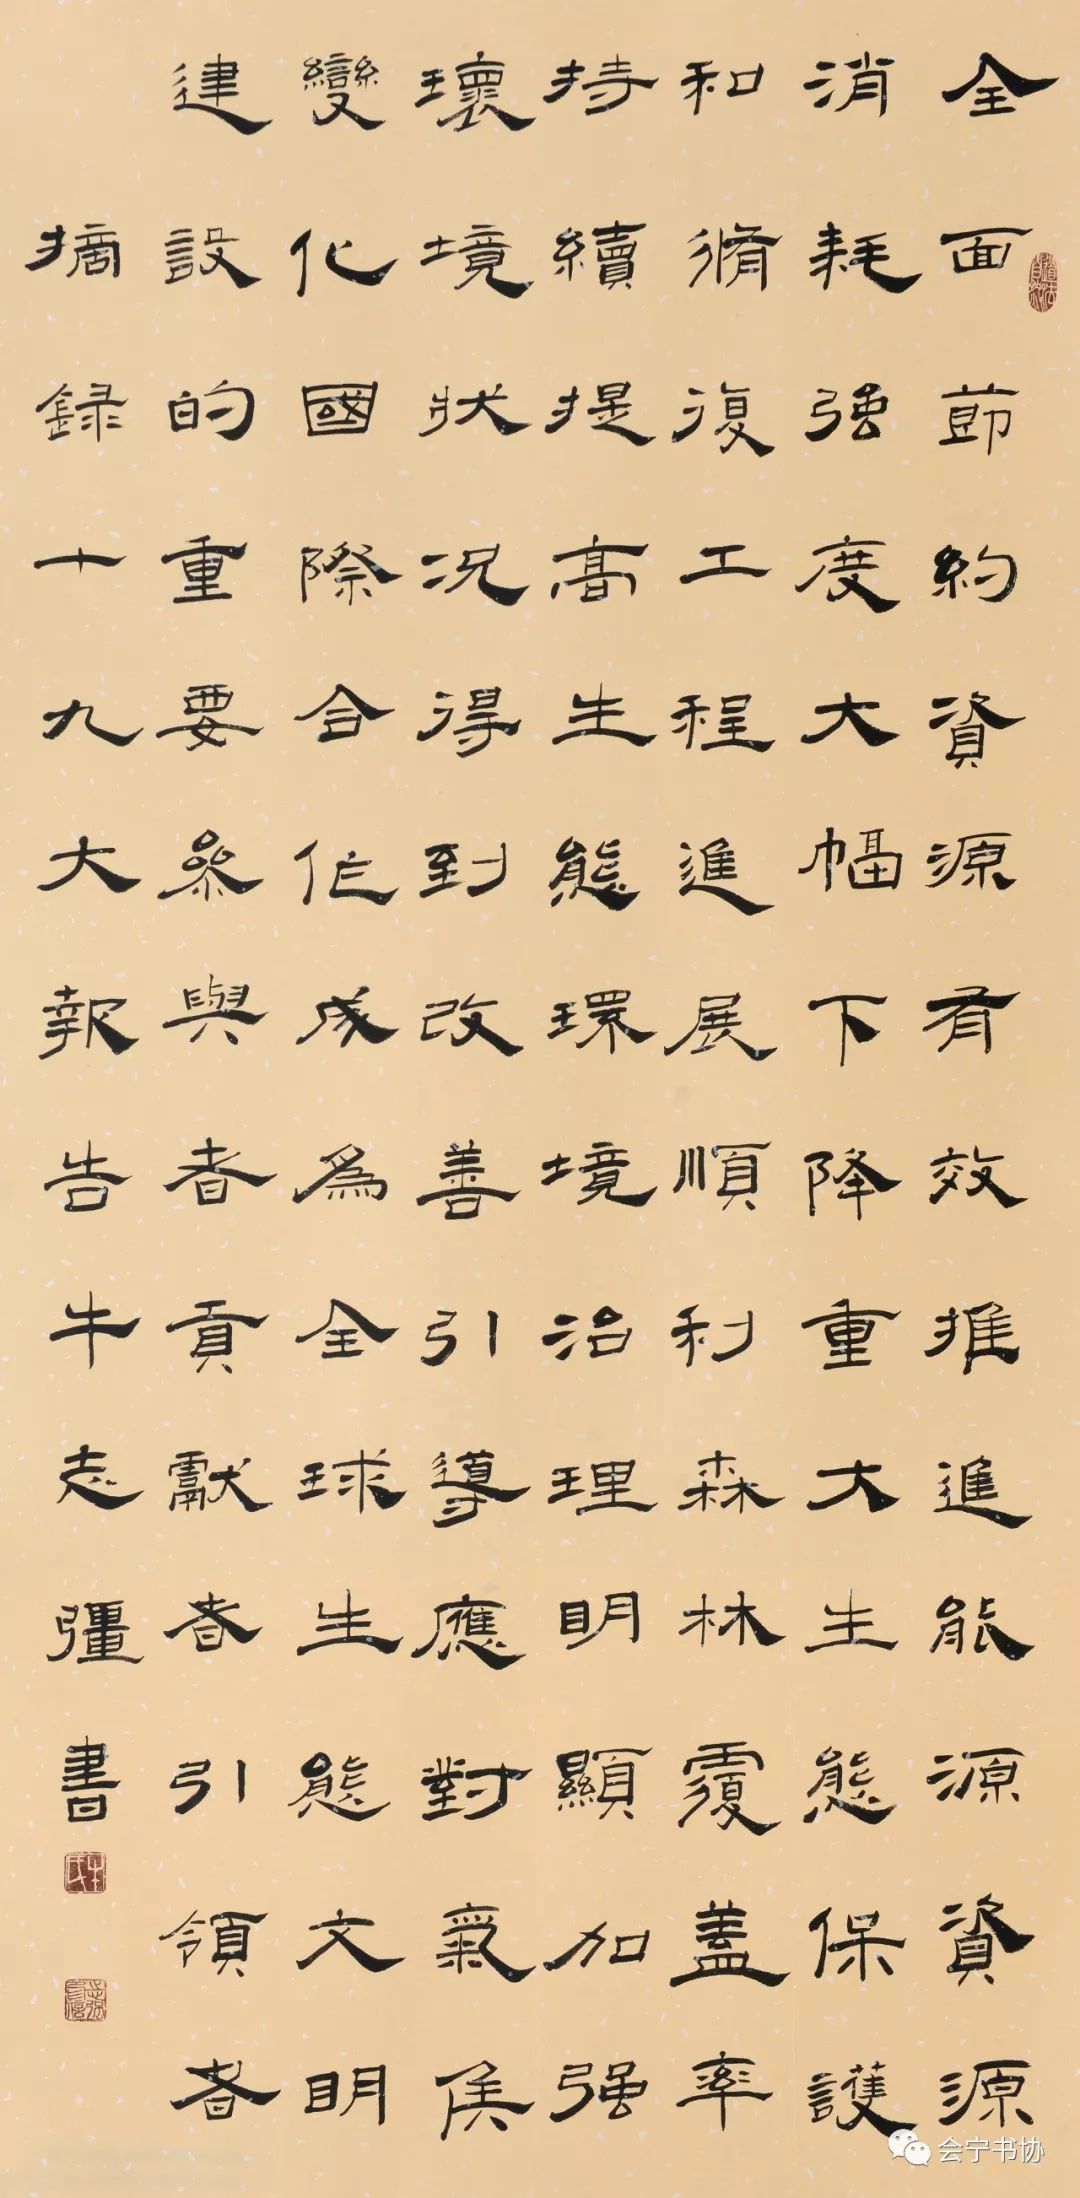 全面節約資源有效推進能源資源
消耗強度大幅下降重大生態保護
和脩復工程進展順利森林覆蓋率
持續提高生態環境治理明顯加强
環境狀況得到改善引導應對氣侯
變化國際合作成為全球生態文明
建設的重要參與者貢獻者引領者
摘録十九大報告牛志彊書
道法自然
会宁书协